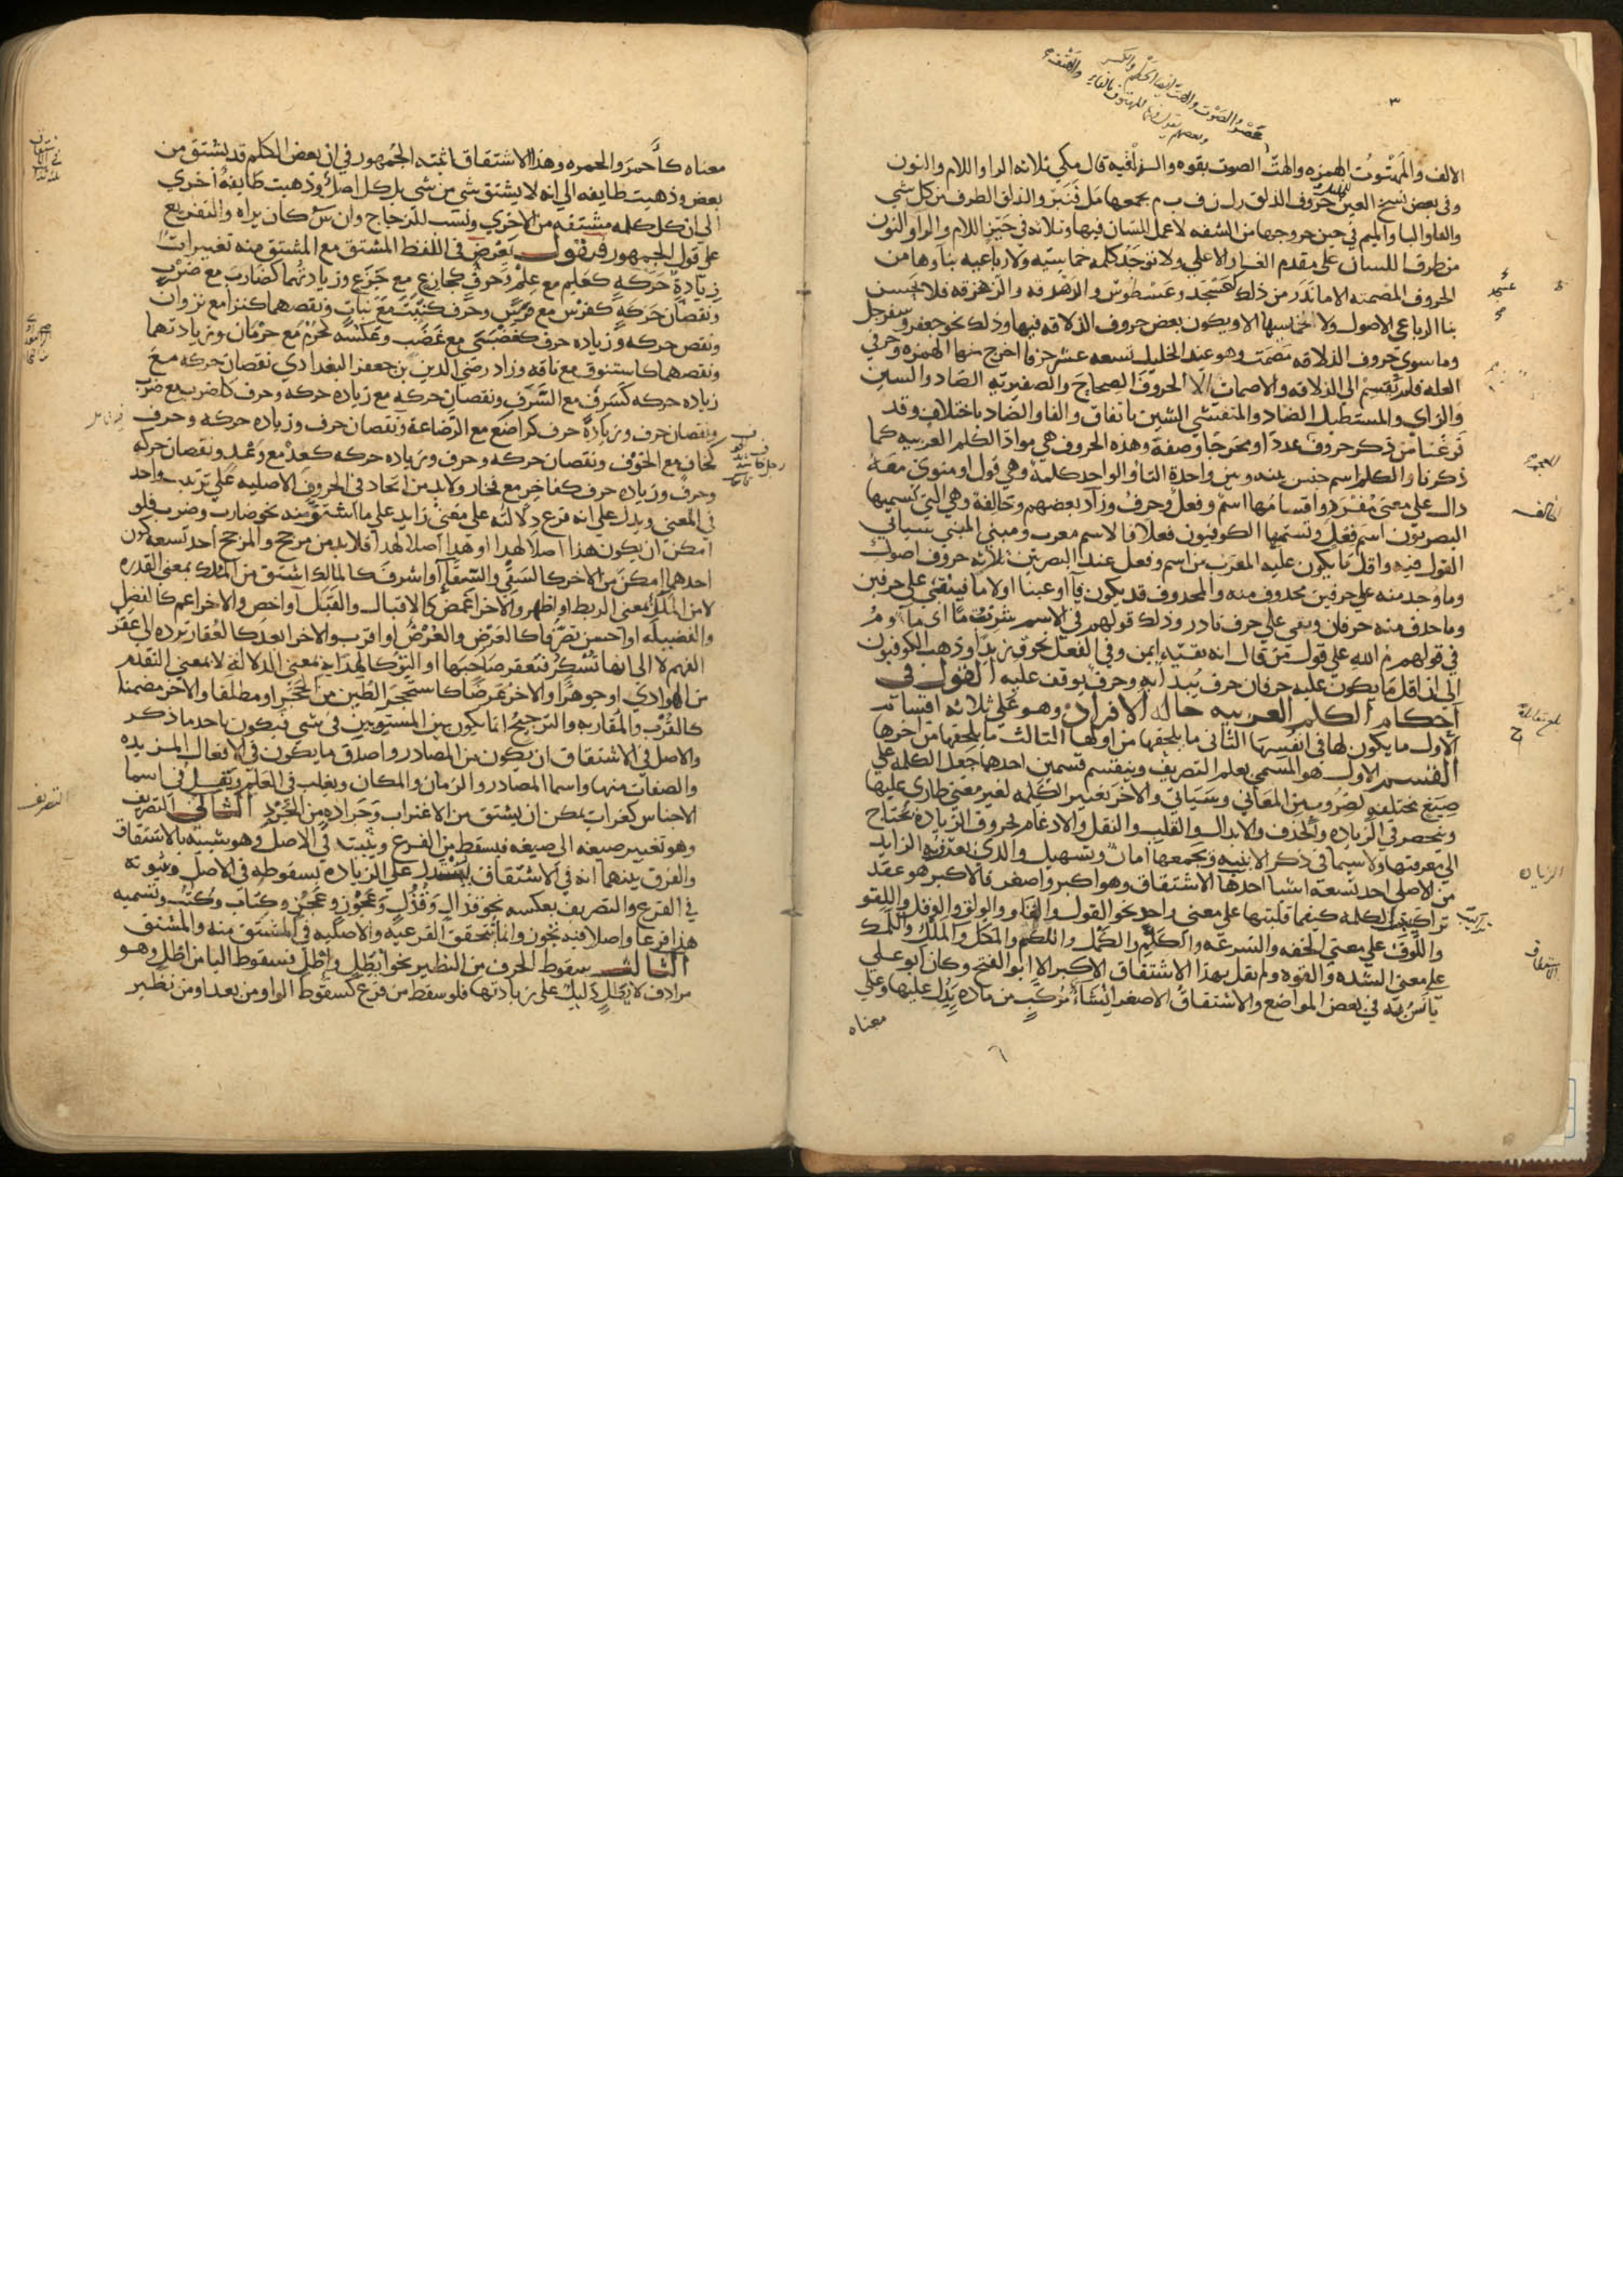 ٣
الالف والمهتوت الهمزه والهت الصوت بقوه والذلقيه قال مكي ثلاثه الرا واللام والنون
وفي بعض نسخ العين حروف الذلق ر ل ن ف ب م يجمعها مل فنبر والذلق الطرف من كل شي
والفا والبا والميم في حين خروجها من الشفه لا عمل للسان فيها وثلاثه في حيز اللام والرا والنون
من طرف اللسان على مقدم الغار الاعلى ولا توجد كلمه خماسيه ولا رباعيه بناوها من
الحروف المصمته الا ما ندر من ذلك كعسجد وعسطوس والزهزقه فلا يحسن
بنا الرباعي الاصول ولا الخماسيها الا ويكون بعض حروف الذلاقه فيها وذلك نحو جعفر وسفرجل
وما سوى حروف الذلاقه مصمت وهو عند الخليل تسعه عشر حرفا اخرج منها الهمزه وحرفي
العله فلم تقسم الى الذلاقه والاصمات الا الحروف الصحاح والصفيريه الصاد والسين
والزاي والمستطيل الضاد والمتفشي الشين باتفاق والفا والضاد باختلاف وقد
فرغنا من ذكر حروف عددا ومخرجا وصفة وهذه الحروف هي مواد الكلم العربيه كما
ذكرنا والكلم اسم جنس بينه وبين واحدة التا والواحد كلمة وهي قول او منوي معه
دال على معنى مفرد واقسامها اسم وفعل وحرف وزاد بعضهم وخالفة وهي التي تسميها
البصريون اسم فعل وتسميها الكوفيون فعلا فالاسم معرب ومبني المبني سياتي
القول فيه واقل ما يكون عليه المعرب من اسم وفعل عند البصريين ثلاثه حروف اصول
وما وجد منه على حرفين محذوف منه والمحذوف قد يكون فا او عينا او لاما فيبقى على حرفين
وما حذف منه حرفان وبقي على حرف نادر وذلك قولهم في الاسم شربت ما اي ما و م
في قولهم م الله على قول من قال انه بقية ايمن وفي الفعل نحو ق زيدا وذهب الكوفيون
الى ان اقل ما يكون عليه حرفان حرف يبدا به وحرف يوقف عليه القول في
احكام الكلم العربيه حاله الافراد وهو على ثلاثه اقسام
الاول ما يكون لها في انفسها الثاني ما يلحقها من اولها الثالث ما يلحقها من اخرها
القسم الاول هو المسمى بعلم التصريف وينقسم قسمين احدهما جعل الكلمه على
صيغ مختلفه لضروب من المعاني وسياتي والاخر تغيير الكلمه لغير معنى طارئ عليها
وينحصر في الزياده والحذف والابدال والقلب والنقل والادغام لحروف الزياده نحتاج
الى معرفتها ولا سيما في ذكر الابنيه ويجمعها امان وتسهيل والذي يعرف به الزايد
من الاصلي احد تسعه اشيا احدها الاشتقاق وهو اكبر واصغر فالاكبر هو عقد
تراكيب الكلمه كيفما قلبتها على معنى واحد نحو القول والقلو والولق والوقل واللقو
واللوق على معنى الخفه والسرعه والكلم والكمل واللكم والمكل والملك واللمك
على معنى الشده والقوه ولم يقل بهذا الاشتقاق الاكبر الا ابو الفتح وكان ابو علي
يانس به في بعض المواضع والاشتقاق الاصغر انشاء مركب من ماده يدل عليها وعلى
معناه
معناه كاحمر والحمره وهذا الاشتقاق اثبته الجمهور في ان بعض الكلم قد يشتق من
بعض وذهبت طايفه الى انه لا يشتق شي من شي بل كل اصل وذهبت طايفه اخرى
الى ان كل كلمه مشتقه من الاخرى ونسب للزجاج وان س كان يراه والتفريع
على قول الجمهور فنقول يعرض في اللفظ المشتق مع المشتق منه تغييرات
زيادة حركة كعلم مع علم وحرف كجازع مع جزع وزيادتهما كضارب مع ضرب
ونقصان حركة كفرس مع فرس وحرف كنبت مع نبات ونقصهما كنزا مع نزوان
ونقص حركه وزياده حرف كغضبى مع غضب وعكسه كحرم مع حرمان وزيادتهما
ونقصهما كاستنوق مع ناقه وزاد رضي الدين بن جعفر البغدادي نقصان حركه مع
زياده حركه كسرف مع السرف ونقصان حركه مع زياده حركه وحرف كاضرب مع ضرب
ونقصان حرف وزيادة حرف كراضع مع الرضاعة ونقصان حرف وزياده حركه وحرف
كخاف مع الخوف ونقصان حركه وحرف وزياده حركه كعد مع وعد ونقصان حركه
وحرف وزياده حرف كفاخر مع فخار ولا بد من اتحاد في الحروف الاصليه على ترتيب واحد
في المعنى ويدل على انه فرع دلالته على معنى زايد على ما اشتق منه نحو ضارب وضرب فلو
امكن ان يكون هذا اصلا لهذا او هذا اصلا لهذا فلا بد من مرجح والمرجح احد تسعه كون
احدهما امكن من الاخر كالسقي والسقا او اشرف كالمالك اشتق من الملك بمعنى القدره
لا من الملك بمعنى الربط او اظهر والاخر اغمض كالاقبال والقبل او اخص والاخر اعم كالفضل
والفضيله او احسن تصرفا كالعرض والعرض او اقرب والاخر ابعد كالعقار ترده الى عقر
الفهم لا الى انها تسكر فتعقر صاحبها او اليق كالهدايه بمعنى الدلالة لا بمعنى التقدم
من الهوادي او جوهرا والاخر عرضا كاستحجر الطين من الحجر او مطلقا والاخر مضمنا
كالقرب والمقاربه والترجيح انما يكون بين المستويين في شي فيكون باحد ما ذكر
والاصل في الاشتقاق ان يكون من المصادر واصدق ما يكون في الافعال المزيده
والصفات منها واسما المصادر والزمان والمكان ويغلب في العلم ويقل في اسما
الاجناس كغراب يمكن ان يشتق من الاغتراب وجراده من الجرد الثاني التصريف
وهو تغيير صيغه الى صيغه فيسقط من الفرع ويثبت في الاصل وهو شبيه بالاشتقاق
والفرق بينهما انه في الاشتقاق يستدل على الزياده بسقوطه في الاصل وثبوته
في الفرع والتصريف بعكسه نحو قذال وقذل وعجوز وعجز وكتاب وكتب وتسميه
هذا فرعا واصلا فيه تجوز وانما تتحقق الفرعيه والاصليه في المشتق منه والمشتق
الثالث سقوط الحرف من النظير نحو ايطل واطل فسقوط اليا من اطل وهو
مرادف لايطل دليل على زيادتها فلو سقط من فرع كسقوط الواو من يعد او من نظير
التصريف